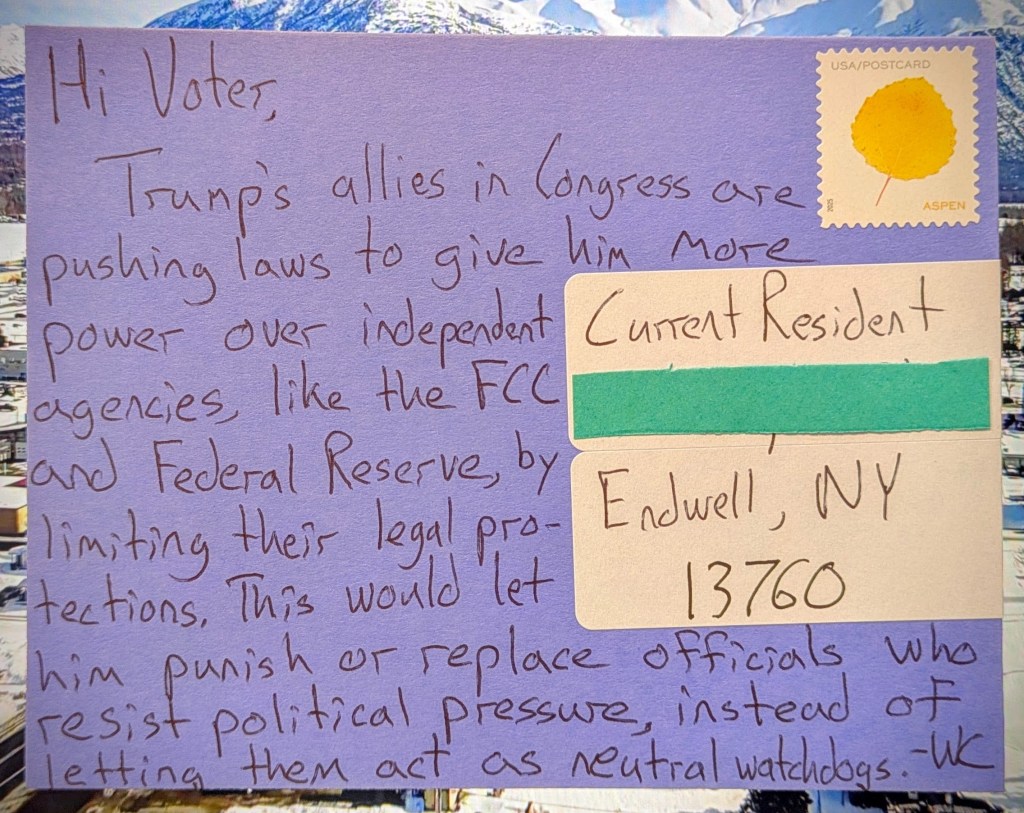 Hi Voter,
USA/POSTCARD
2025
ASPEN
Trump's allies in Congress are
pushing laws to give him more
power over independent
agencies, like the FCC
and Federal Reserve, by
limiting their legal pro-
tections. This would let
him punish or replace officials who
resist political pressure, instead of
letting them act as neutral watchdogs. -WC
Current Resident
Endwell, NY
13760